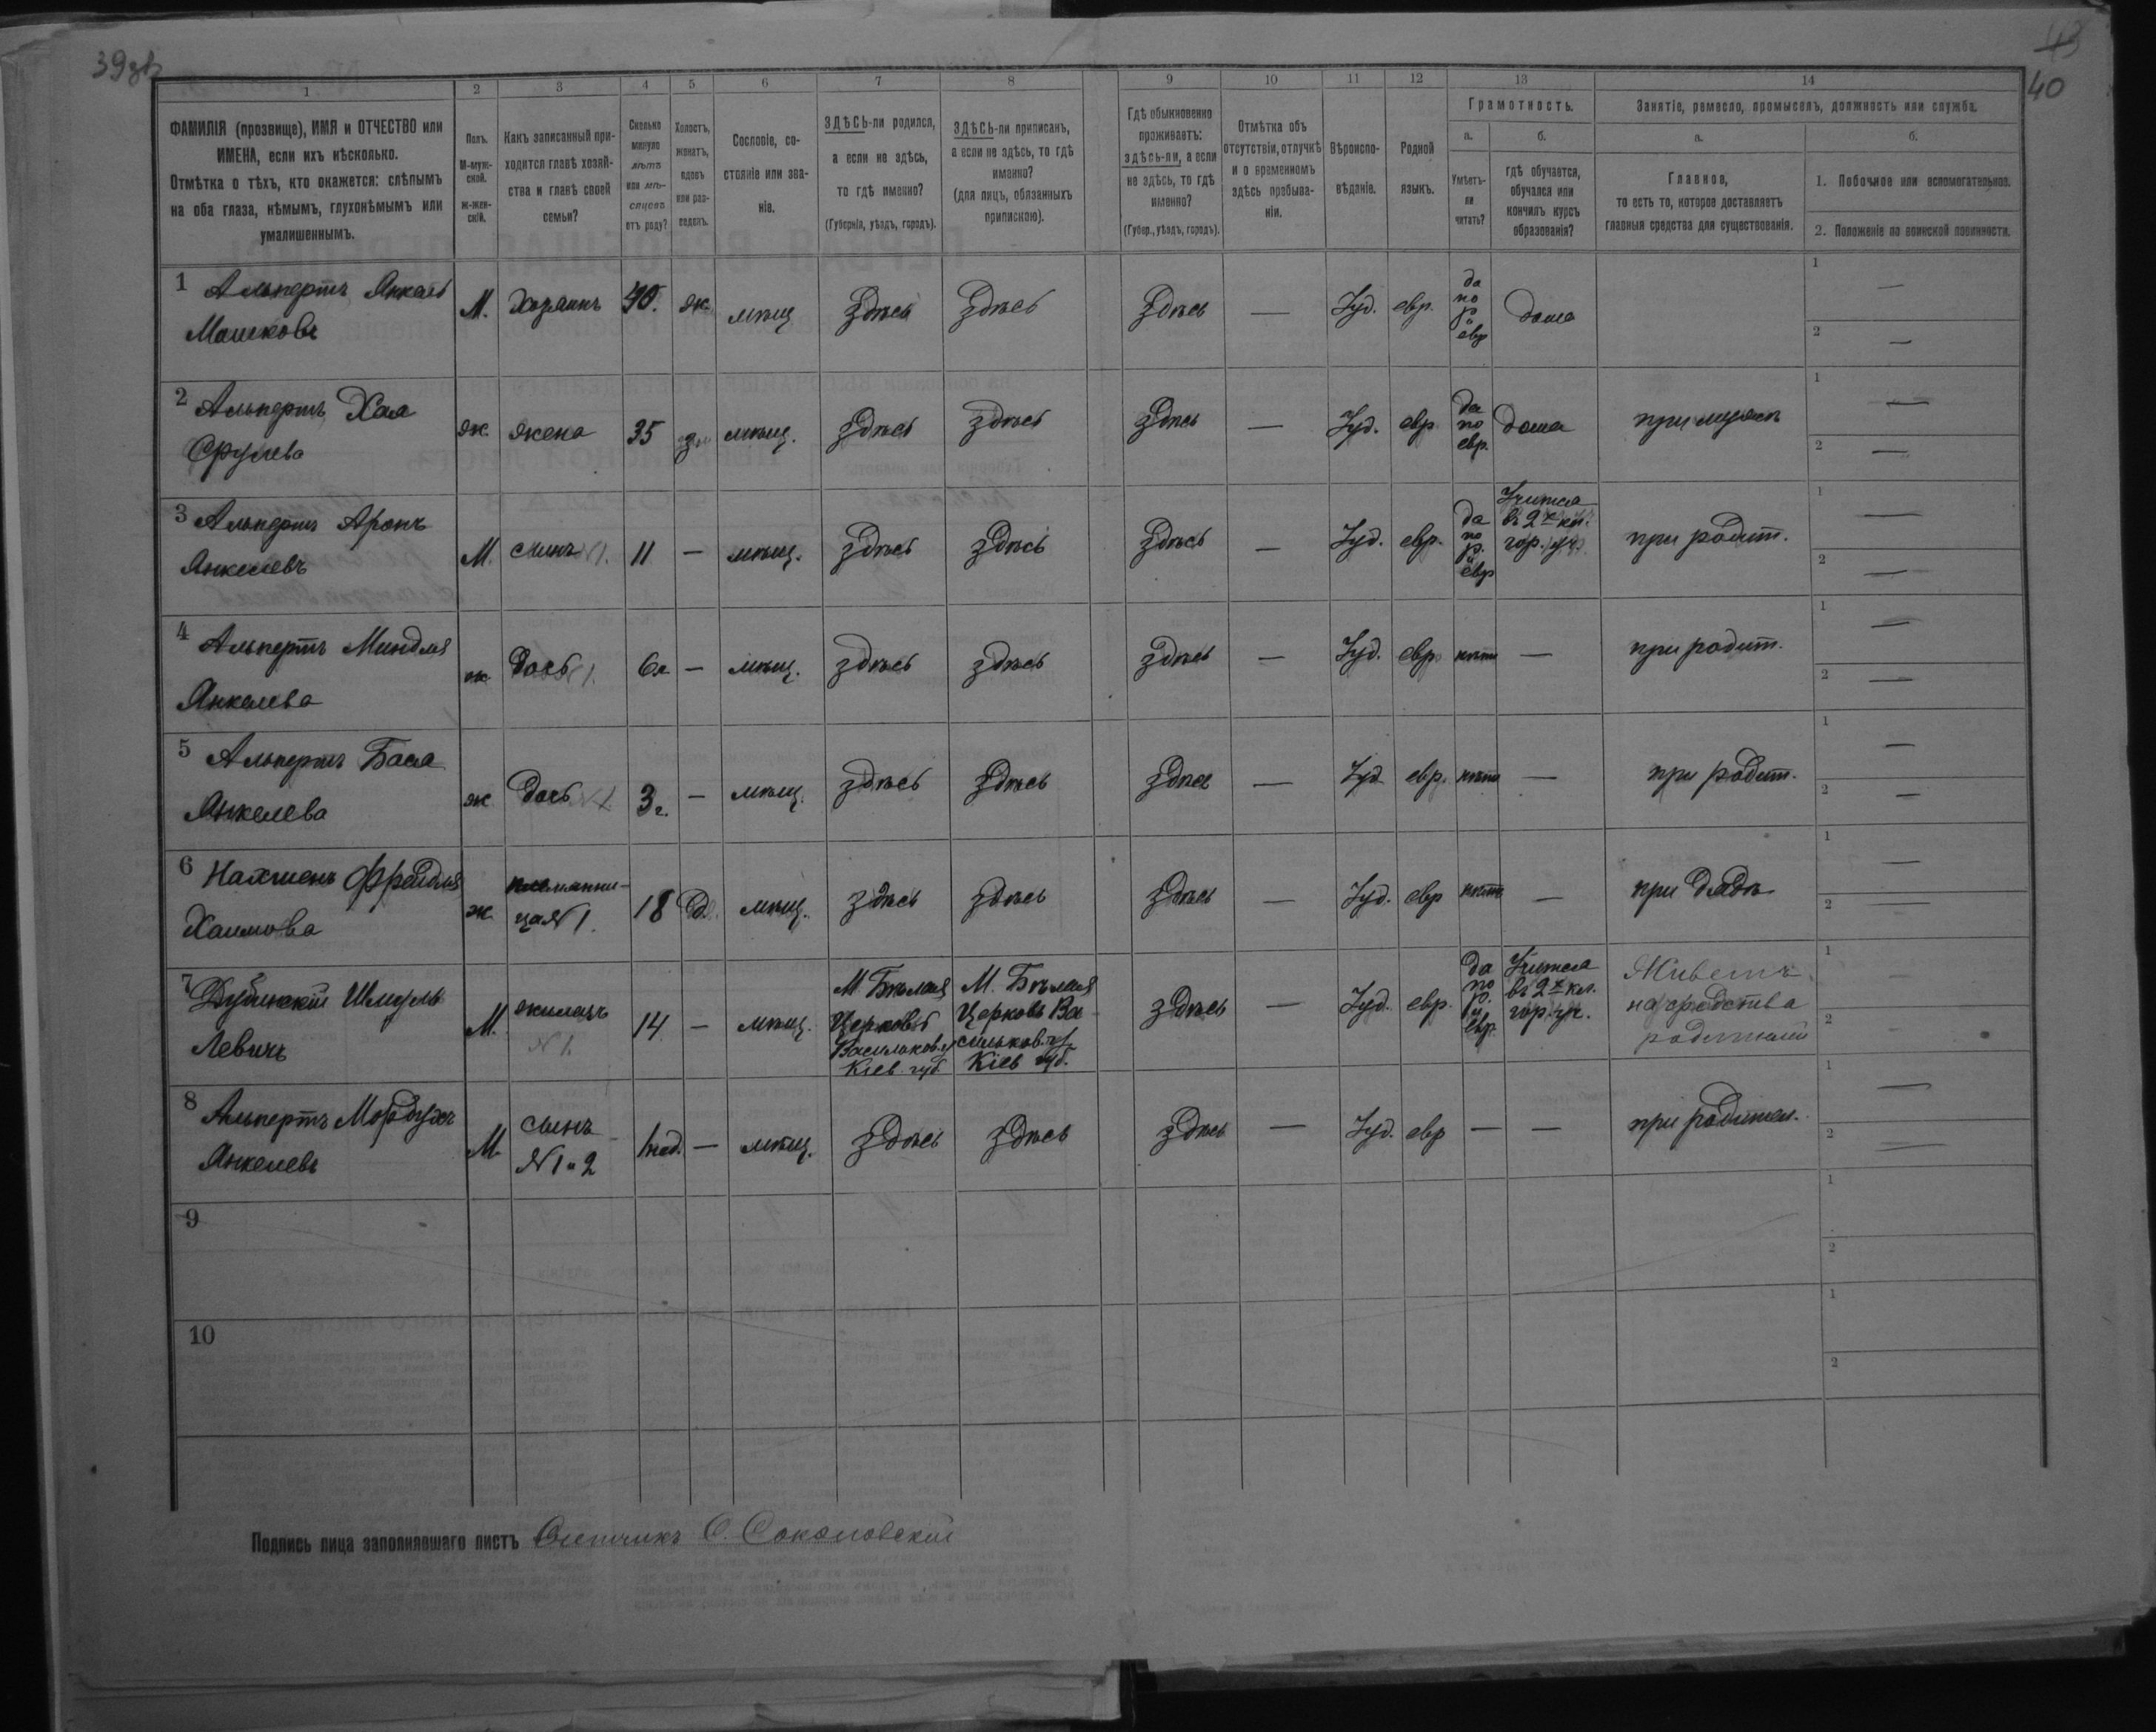 39зв
43
40
1 2 3 4 5 6 7 8 9 10 11 12 13 14
ФАМИЛІЯ (прозвище), ИМЯ и ОТЧЕСТВО или
ИМЕНА, если ихъ нѣсколько.
Отмѣтка о тѣхъ, кто окажется: слѣпымъ
на оба глаза, нѣмымъ, глухонѣмымъ или
умалишеннымъ.
Полъ.
М-муж-
ской.
Ж-жен-
скій.
Какъ записанный при-
ходится главѣ хозяй-
ства и главѣ своей
семьи?
Сколько
минуло
лѣтъ
или мѣ-
сяцевъ
отъ роду?
Холостъ,
женатъ,
вдовъ
или раз-
веденъ.
Сословіе, со-
стояніе или зва-
ніе.
ЗДѢСЬ-ли родился,
а если не здѣсь,
то гдѣ именно?
(Губернія, уѣздъ, городъ).
ЗДѢСЬ-ли приписанъ,
а если не здѣсь, то гдѣ
именно?
(для лицъ, обязанныхъ
припискою).
Гдѣ обыкновенно
проживаетъ:
здѣсь-ли, а если
не здѣсь, то гдѣ
именно?
(Губер., уѣздъ, городъ).
Отмѣтка объ
отсутствіи, отлучкѣ
и о временномъ
здѣсь пребыва-
ніи.
Вѣроиспо-
вѣданіе.
Родной
языкъ.
Грамотность.
а.
Умѣетъ-
ли
читать?
б.
гдѣ обучается,
обучался или
кончилъ курсъ
образованія?
Занятіе, ремесло, промыселъ, должность или служба.
а.
Главное,
то есть то, которое доставляетъ
главныя средства для существованія.
б.
1. Побочное или вспомогательное.
2. Положеніе по воинской повинности.
1 Альпертъ Янкель
Мошковъ
М. Хозяинъ 40. ж. мѣщ Здѣсь Здѣсь Здѣсь — Іуд. евр.
да
по
р.
и
евр
дома
1 —
2 —
2 Альпертъ Хая
Срулева
ж. жена 35 з мѣщ. Здѣсь здѣсь здѣсь — Іуд. евр
да
по
евр.
дома при мужѣ
1 —
2 —
3 Альпертъ Аронъ
Янкелевъ
М. сынъ N1. 11 — мѣщ. здѣсь здѣсь здѣсь — Іуд. евр.
да
по
р.
и
евр
Учится
въ 2х кл.
гор. уч.
при родит.
1 —
2 —
4 Альпертъ Миндля
Янкелева
ж дочь N1. 6л — мѣщ. здѣсь здѣсь здѣсь — Іуд. евр нѣтъ — при родит.
1 —
2 —
5 Альпертъ Бася
Янкелева
ж дочь N1 3г. — мѣщ. здѣсь здѣсь здѣсь — Іуд. евр. нѣтъ — при родит.
1 —
2 —
6 Нахменъ Фрейдля
Хаимова
ж.
племянни-
ца N1.
18 Д. мѣщ. здѣсь здѣсь здѣсь — Іуд. евр нѣтъ — при дядѣ
1 —
2 —
7 Дубинскій Шмуль
Левичъ
М.
жилецъ
N1.
14 — мѣщ.
М Бѣлая
Церковь
Васильков. у
Кіев губ
М. Бѣлая
Церковь Ва
сильков. у
Кіев губ.
здѣсь — Іуд. евр.
да
по
р.
и
евр.
Учится
въ 2х кл.
гор. уч.
Живетъ
на средства
родителей
1 —
2 —
8 Альпертъ Мордухъ
Янкелевъ
М
сынъ
N1 и 2
1 нед. — мѣщ. здѣсь здѣсь здѣсь — Іуд. евр — — при родител.
1 —
2 —
9
1
2
10
1
2
Подпись лица заполнявшаго листъ Счетчикъ С. Соколовскій